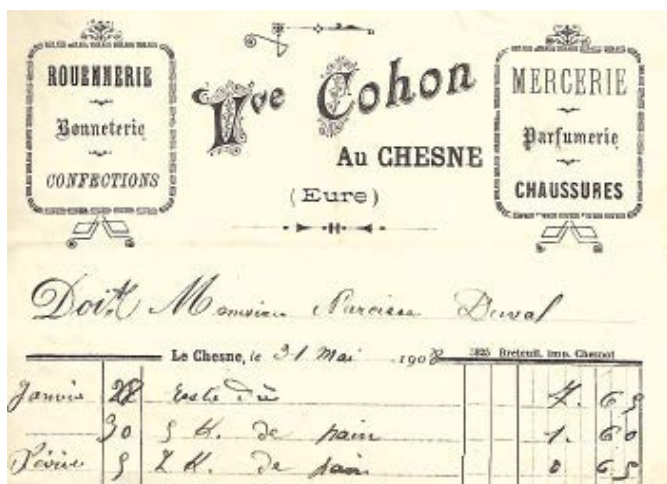 ROUENNERIE
Bonneterie
CONFECTIONS
Vve Cohon
Au CHESNE
(Eure)
MERCERIE
Parfumerie
CHAUSSURES
Doit Monsieur Narcisse Duval
Le Chesne, le 31 Mai 1908 1825 Breteuil. Imp. Chesnot
Janvier 28 reste dû 7. 65
30 5 K. de pain 1. 60
Février 5 2 K. de pain 0 65